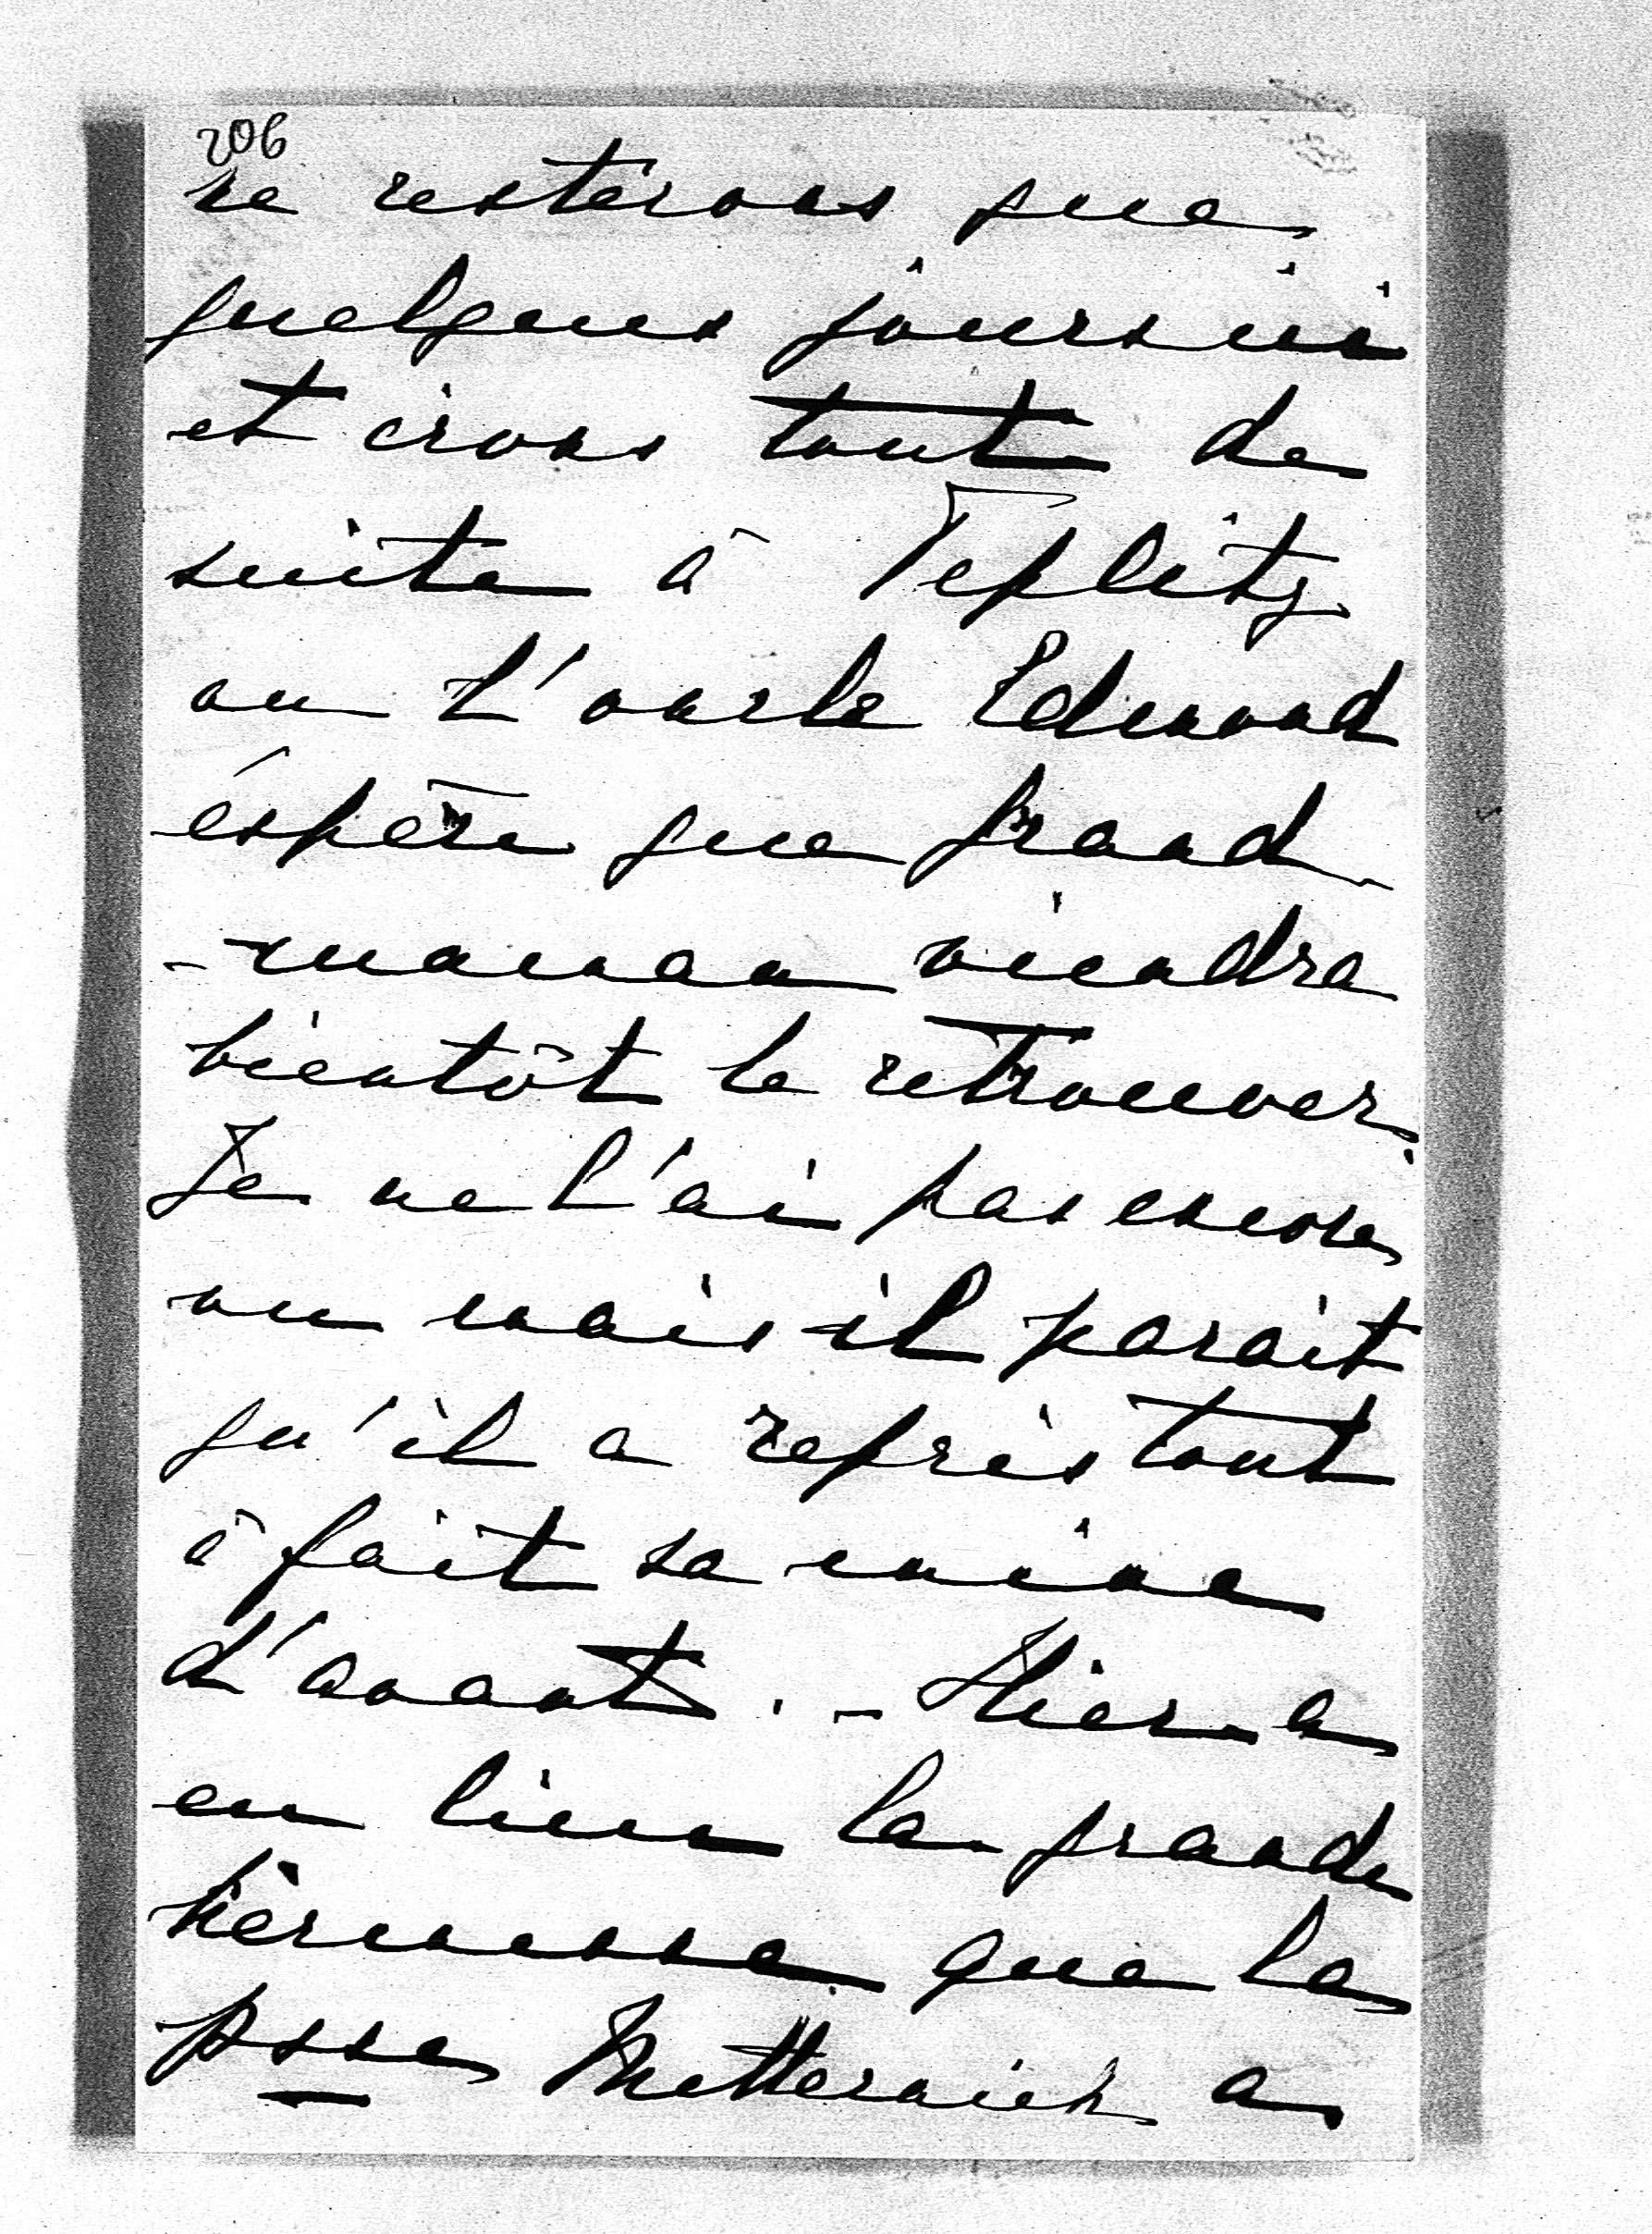 206
ne resterons que
quelques jours ici
et irons tout de
suite à Teplitz
ou l'oncle Edmond
éspère que grand
-maman viendra
bientôt le retrouver.
Je ne l'ai pas encore
vu mais il parait
qu'il a repris tout
à fait sa mine
d'avant. - Hier a
eu lieu la grande
kermesse que la
psse Metternich a